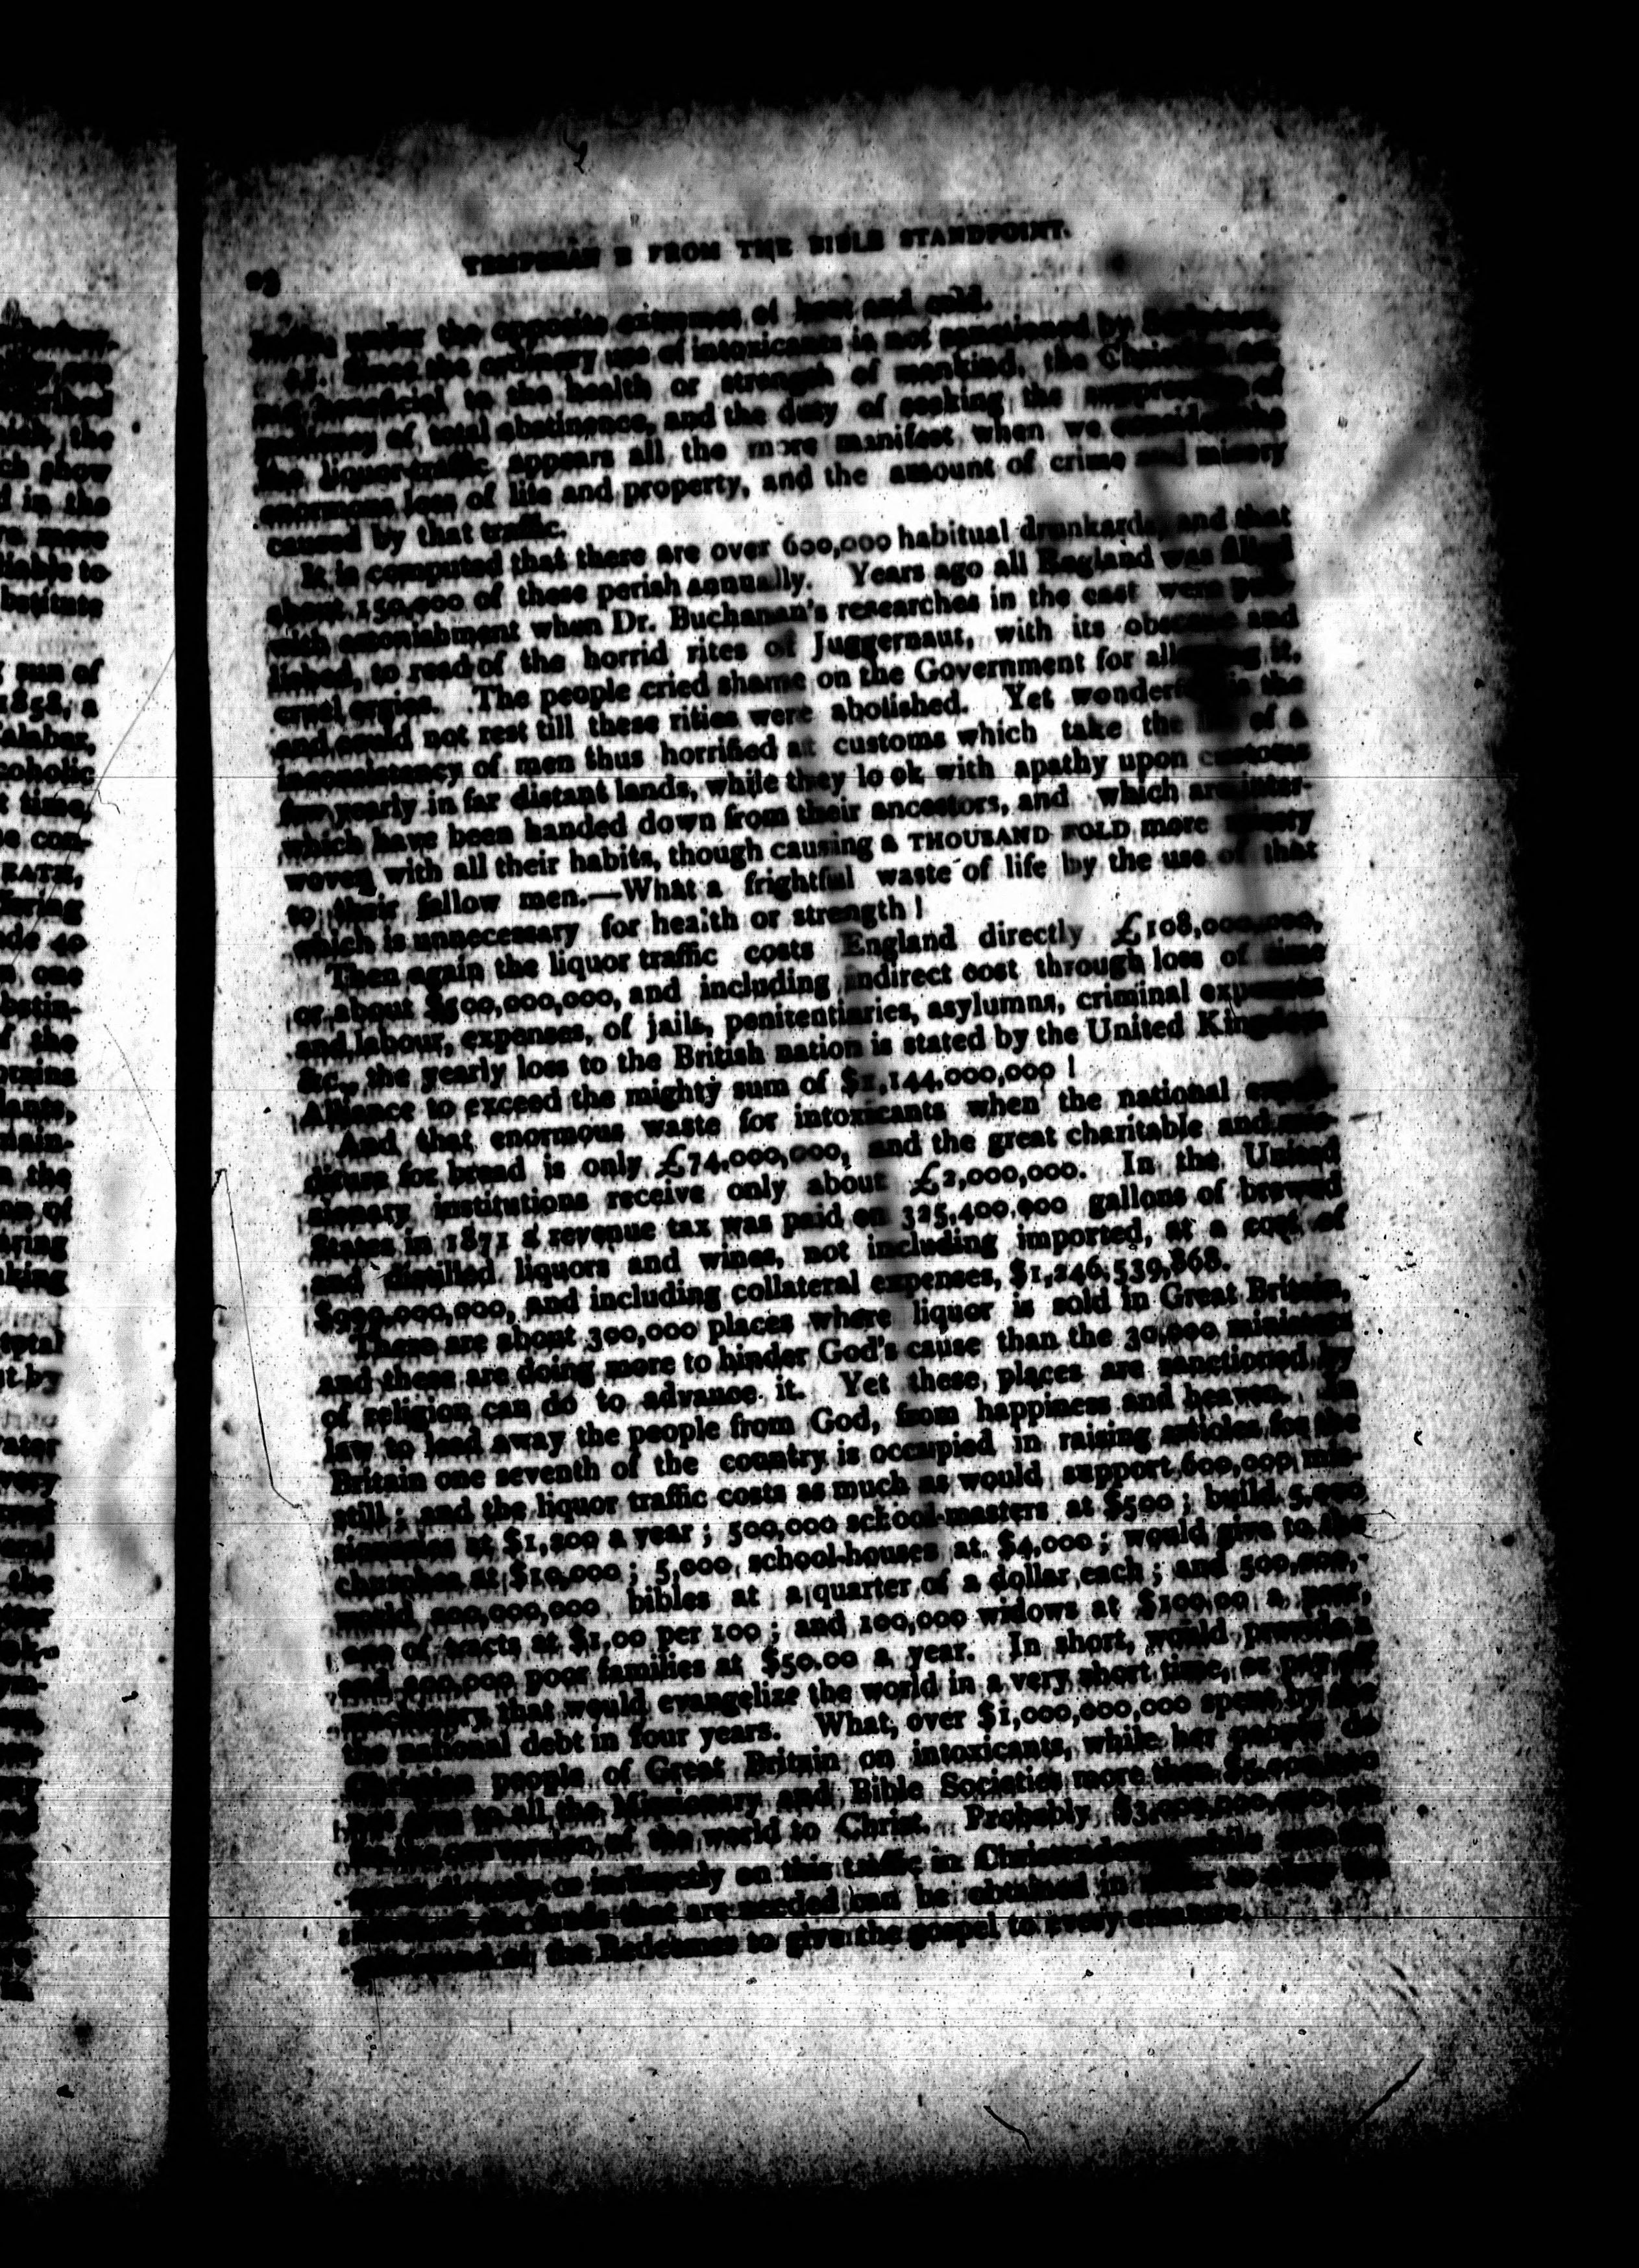 TEMPERAN E FROM THE BIBLE STANDPOINT.
under the opposite extremes of heat and cold.
Since the ordinary use of intoxicants is not sanctioned by
beneficial to the health or strength of mankind, the Christian
of total abstinence, and the duty of seeking the suppression of
the liquor traffic appears all the more manifest when we consider the
enormous loss of life and property, and the amount of crime and misery
caused by that traffic.
It is computed that there are over 600,000 habitual drunkards, and that
about 150,000 of these perish annually. Years ago all England was filled
with astonishment when Dr. Buchanan's researches in the east were pub-
lished, to read of the horrid rites of Juggernaut, with its obscene and
cruel orgies. The people cried shame on the Government for allowing it,
and could not rest till these rities were abolished. Yet wonderful is the
inconsistency of men thus horrified at customs which take the life of a
few yearly in far distant lands, while they lo ok with apathy upon customs
which have been handed down from their ancestors, and which are inter-
woven with all their habits, though causing a THOUSAND FOLD more misery
to their fellow men.—What a frightful waste of life by the use of that
which is unnecessary for health or strength!
Then again the liquor traffic costs England directly £108,000,000,
or about $500,000,000, and including indirect cost through loss of time
and labour, expenses, of jails, penitentiaries, asylumns, criminal expenses
&c., the yearly loss to the British nation is stated by the United Kingdom
Alliance to exceed the mighty sum of $1,144,000,000!
And that enormous waste for intoxicants when the national expen-
diture for bread is only £74,000,000, and the great charitable and mis-
sionary institutions receive only about £2,000,000. In the United
States in 1871 a revenue tax was paid on 325,400,000 gallons of brewed
and distilled liquors and wines, not including imported, at a cost of
$990,000,000, and including collateral expenses, $1,246,539,868.
There are about 300,000 places where liquor is sold in Great Britain,
and these are doing more to hinder God's cause than the 30,000 ministers
of religion can do to advance it. Yet these places are sanctioned by
law to lead away the people from God, from happiness and heaven. In
Britain one seventh of the country is occupied in raising articles for the
still; and the liquor traffic costs as much as would support 600,000 mis-
sionaries at $1,200 a year; 500,000 school-masters at $500; build 5,000
churches at $10,000; 5,000 school-houses at $4,000; would give to the
world 200,000,000 bibles at a quarter of a dollar each; and 500,000,-
000 of tracts at $1,00 per 100; and 100,000 widows at $100,00 a year,
and 200,000 poor families at $50.00 a year. In short, would provide a
machinery that would evangelize the world in a very short time, or pay off
the national debt in four years. What, over $1,000,000,000 spent by the
Christian people of Great Britain on intoxicants, while her people do
not give to all the Missionary and Bible Societies more than
for the conversion of the world to Christ. Probably $3,000,000,000 are
spent directly or indirectly on this traffic in Christendom, while
the funds that are needed can be obtained in order to obey the
command of the Redeemer to give the gospel to every creature.